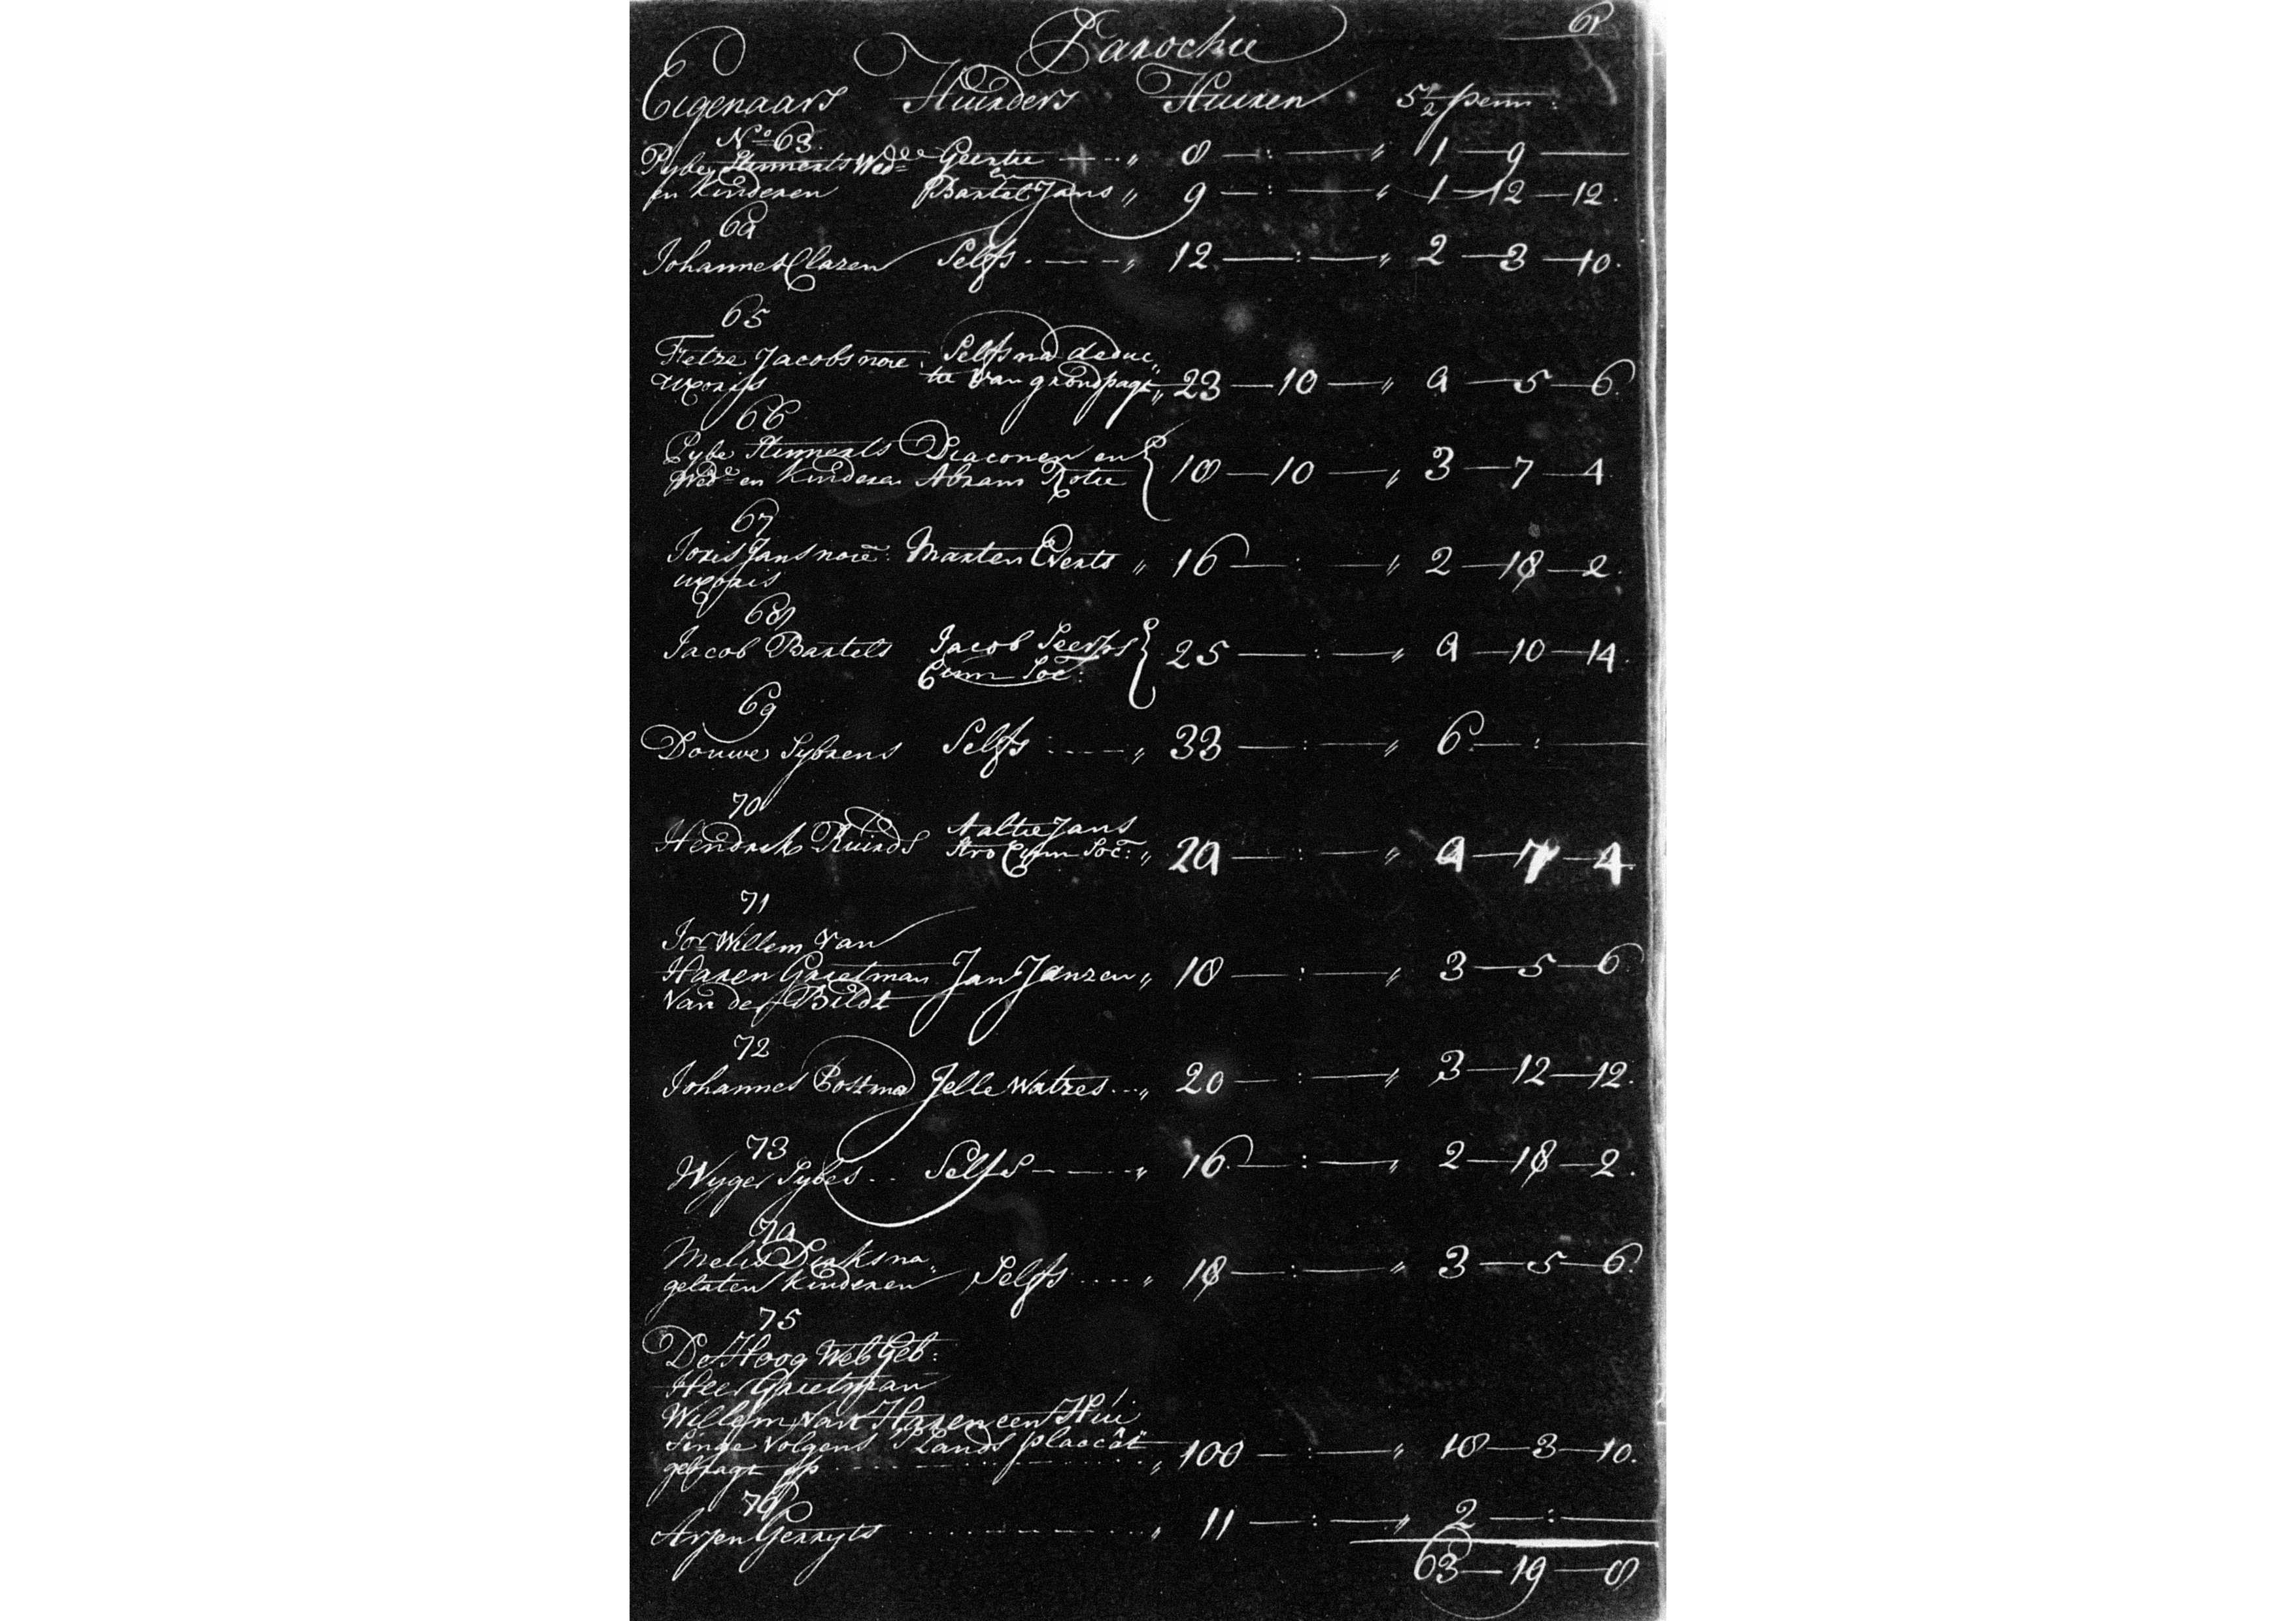 61
Parochie
Eigenaars Huirders Huiren 5½ penn:
No 63.
Pybe Stinnerts Wede Geertie - - - „ 8 — : — „ 1 — 9 —
en Kinderen en Bartel Jans „ 9 — : — „ 1 — 12 — 12.
64
Johannes Clazen Selfs . - - - „ 12 — : — „ 2 — 3 — 10.
65
Fetze Jacobs noie. Selfs na deduc„
uxoris tie van grondpagt „ 23 — 10 — „ 4 — 5 — 6.
66
Pybe Stinnerts Diaconen en
Wede en Kinderen Abram Rotie { 18 — 10 — „ 3 — 7 — 4
67
Joris Jans noie: Marten Everts „ 16 — : — „ 2 — 18 — 2.
uxoris
68
Jacob Bartels Jacob Seerps { 25 — : — „ 4 — 10 — 14.
Cum Soc:
69
Douwe Sybrens Selfs : - - - „ 33 — : — „ 6 — : —
70
Hendrik Ruirds Aaltie Jans
Stro Cum Soc: „ 24 — : — „ 4 — 7 — 4
71
Jor Willem Van
Haren Grietman Jan Janzen „ 18 — : — „ 3 — 5 — 6
Van des Bildt
72
Johannes Postma Jelle Watzes . . . „ 20 — : — „ 3 — 12 — 12.
73
Wyger Sybes . . Selfs - - - „ 16 — : — „ 2 — 18 — 2.
74
Melis Dirks na„
gelaten Kinderen Selfs . . . . „ 18 — : — „ 3 — 5 — 6.
75
De Hoog Welgeb:
Heer Grietman
Willem Van Haren een Hui
singe volgens 'S Lands placcât
gebragt op . . . . . . „ 100 — : — „ 18 — 3 — 10.
76
Arjen Gerryts . . . . . . „ 11 — : — „ 2 — : —
63 — 19 — 8